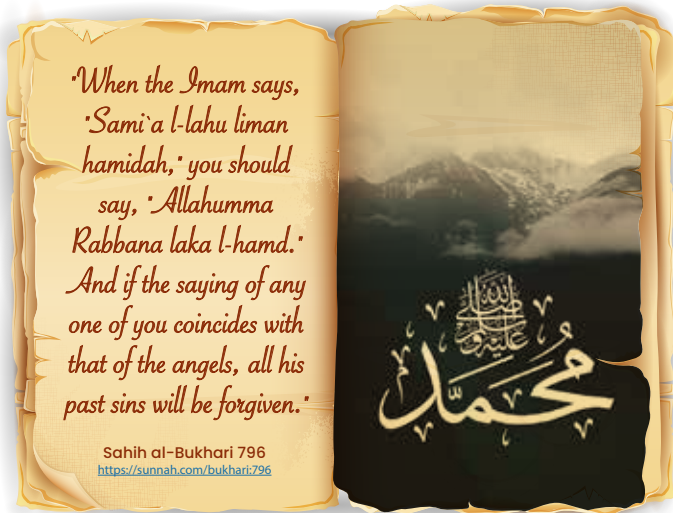 "When the Imam says,
"Sami`a l-lahu liman
hamidah," you should
say, "Allahumma
Rabbana laka l-hamd."
And if the saying of any
one of you coincides with
that of the angels, all his
past sins will be forgiven."
Sahih al-Bukhari 796
https://sunnah.com/bukhari:796
صلى الله عليه وسلم
محمد